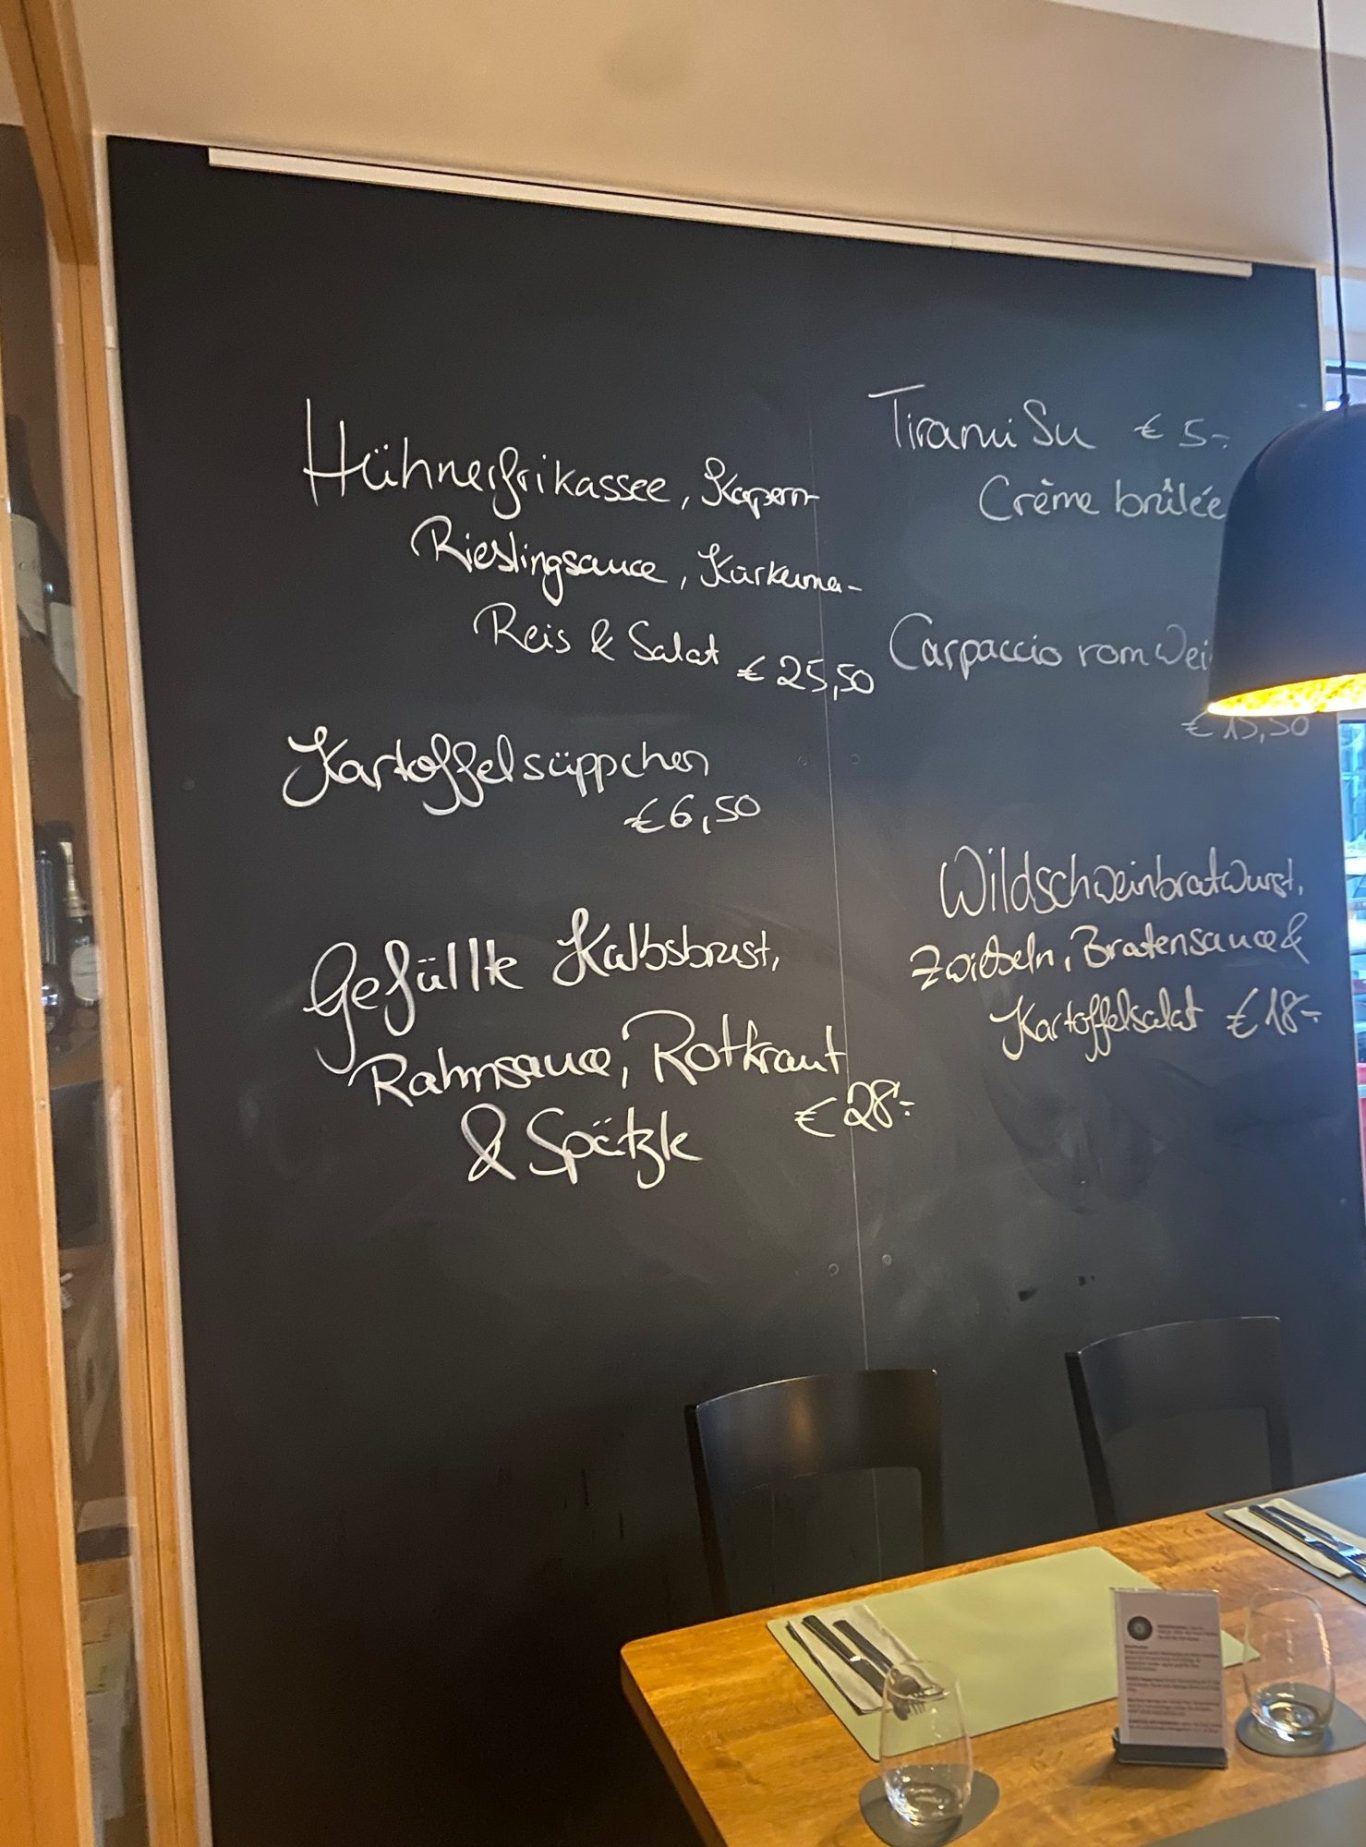 Hühnerfrikassee, Kapern-
Rieslingsauce, Kurkuma-
Reis & Salat € 25,50
Kartoffelsüppchen
€ 6,50
Gefüllte Kalbsbrust,
Rahmsauce, Rotkraut
& Spätzle € 28.-
Tirami Su € 5.-
Crème brûlée
Carpaccio vom Wei
€ 15,50
Wildschweinbratwurst,
Zwiebeln, Bratensauce &
Kartoffelsalat € 18.-